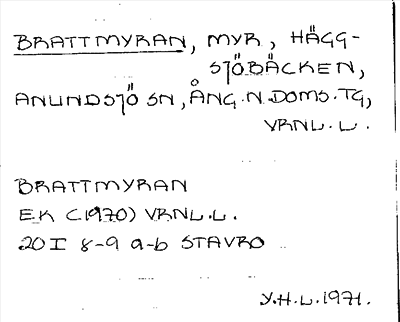 BRATTMYRAN, MYR, HÄGG-
SJÖBÄCKEN,
ANUNDSJÖ SN, ÅNG.N.DOMS.TG,
VRNL.L.
BRATTMYRAN
EK (1970) VRNL.L.
20I 8-9 a-b STAVRO
Y.H.L.1971.